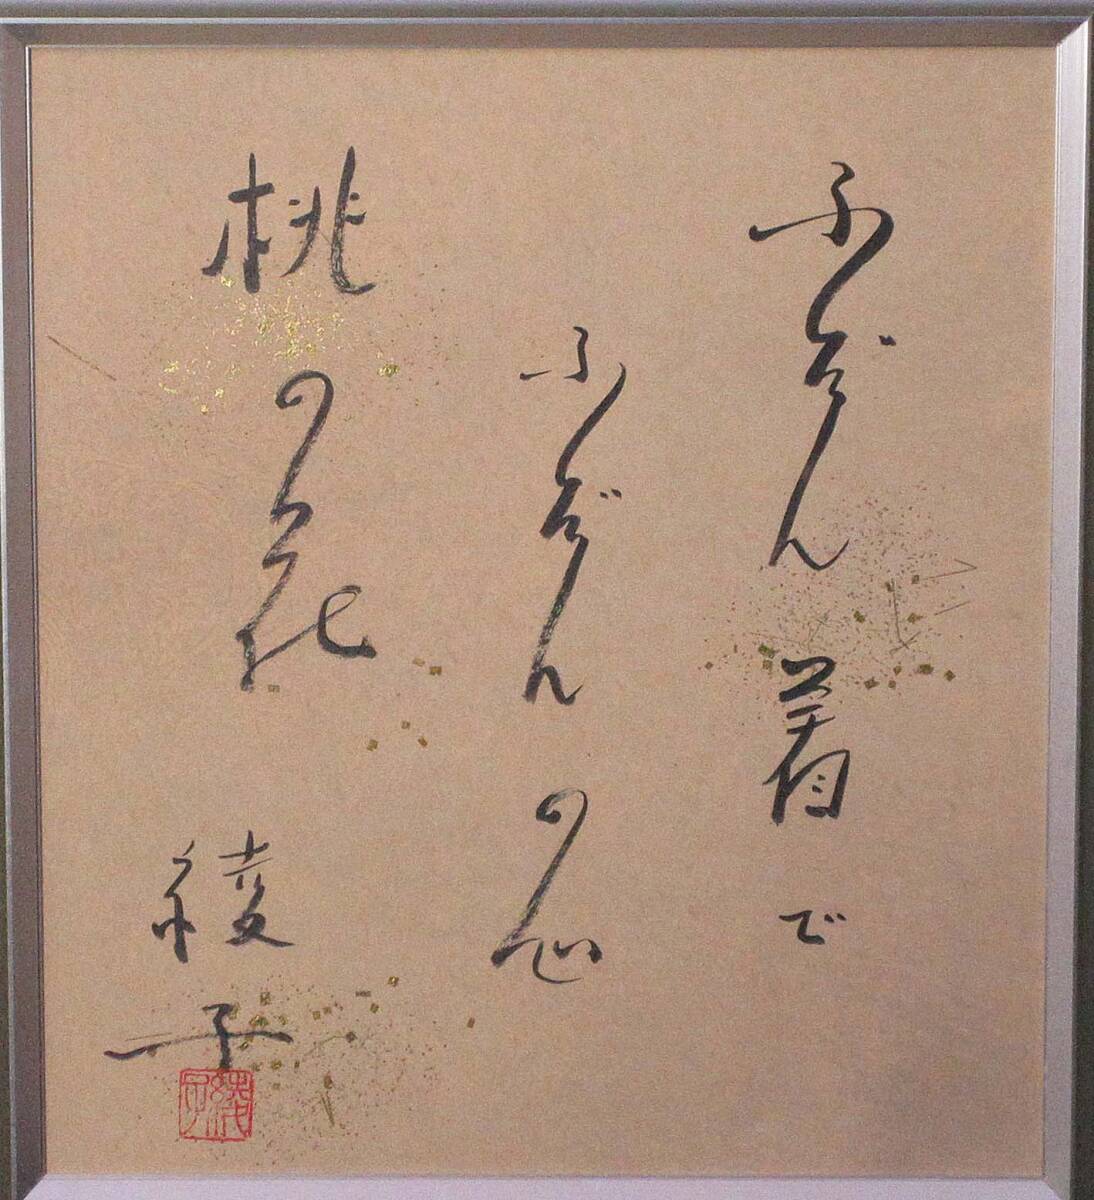 ふだん着で
ふだんの心
桃の花
綾子